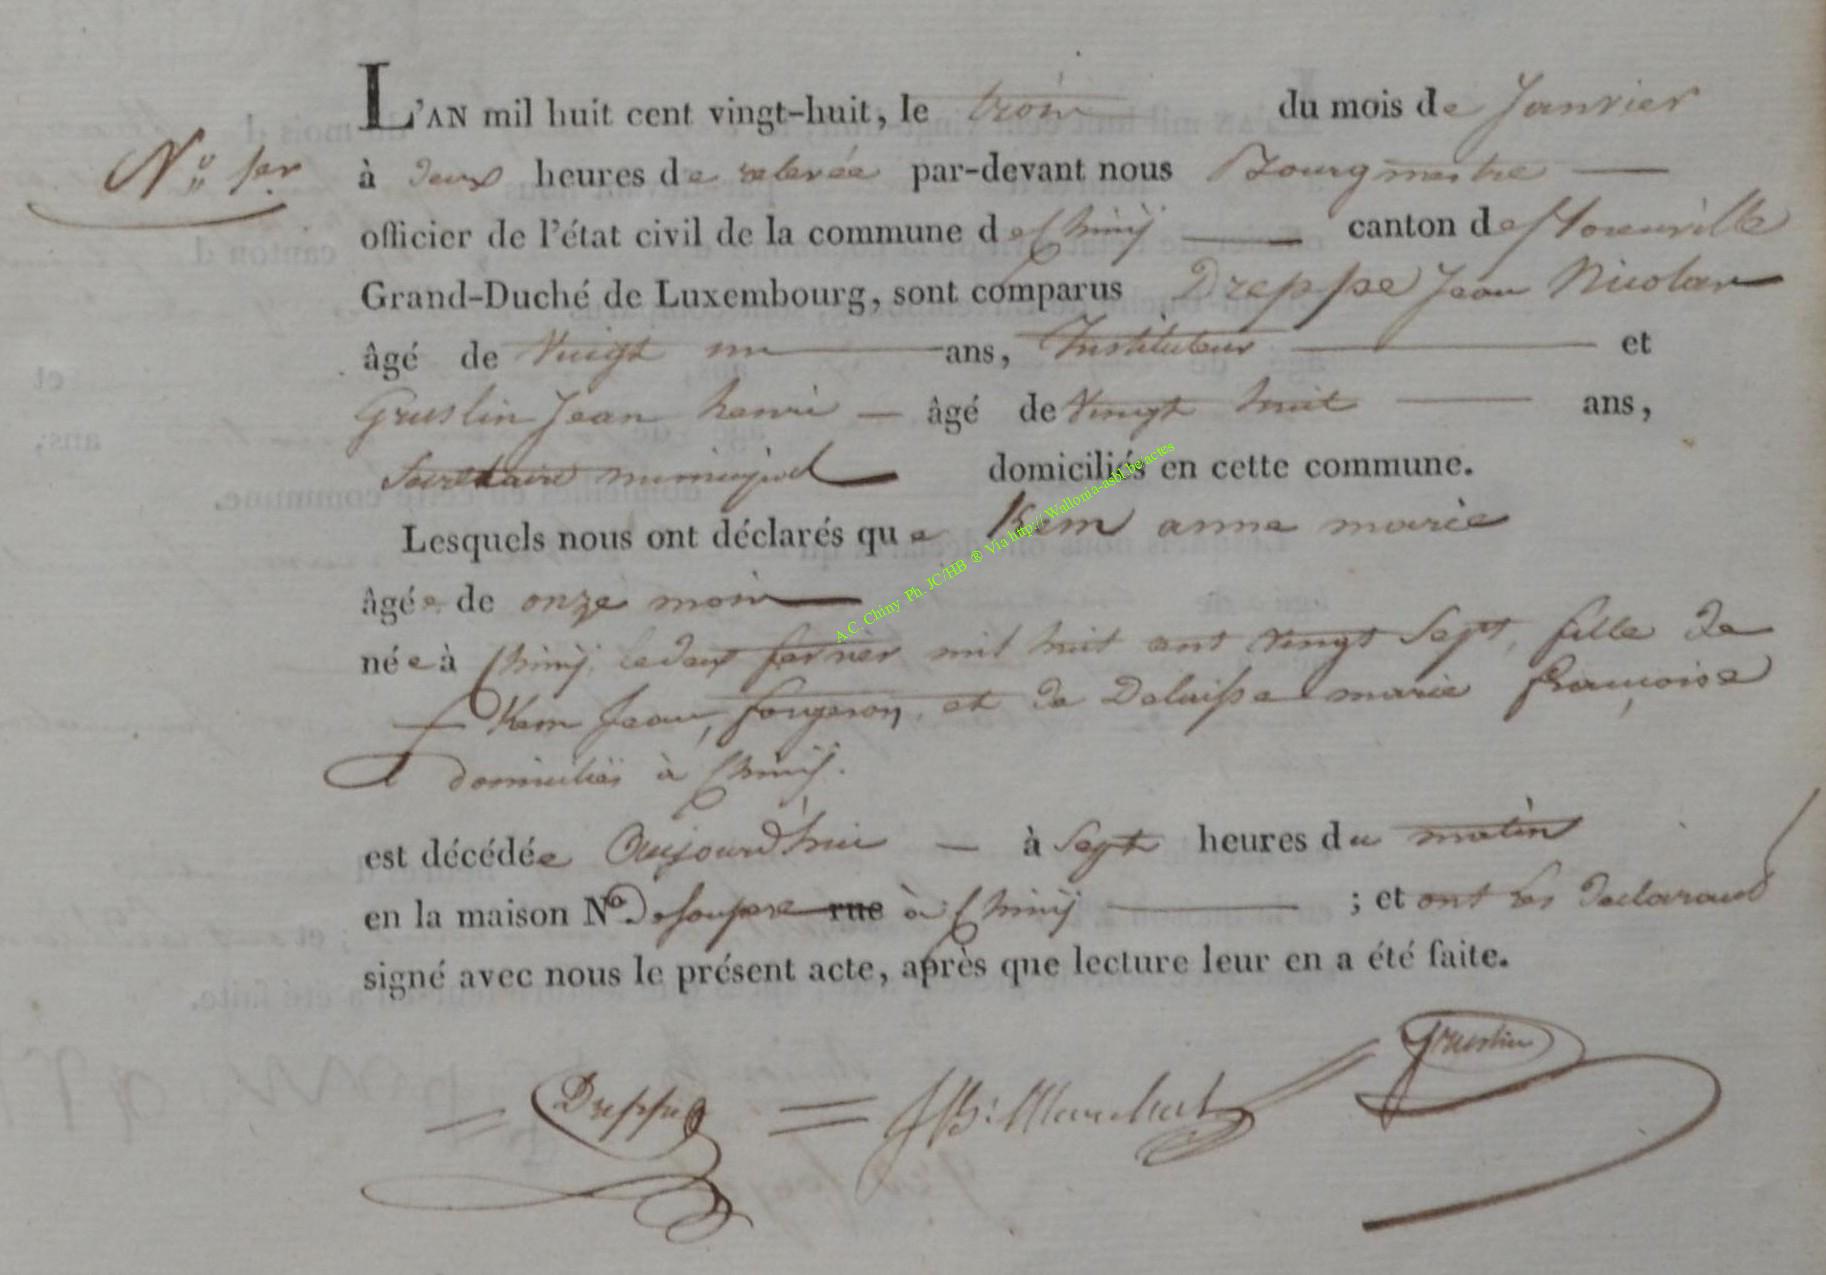 L'AN mil huit cent vingt-huit, le trois du mois de Janvier
N.° 1er à deux heures de relevée par-devant nous Bourgmestre
officier de l'état civil de la commune de Chinÿ canton de florenville
Grand-Duché de Luxembourg, sont comparus Dreppe Jean Nicolas
âgé de Vingt un ans, Instituteur et
Gruslin Jean henri âgé de Vingt huit ans,
Secretaire municipal domiciliés en cette commune.
Lesquels nous ont déclarés que Kem anne marie
âgée de onze mois
née à Chinÿ le deux fevrier mil huit cent vingt sept, fille de
Kem Jean, forgeron, et de Delaisse marie françoise
domiciliés à Chinÿ.
est décédée Aujourd'hui à Sept heures du matin
en la maison N.° rue à Chinÿ ; et ont les declarans
signé avec nous le présent acte, après que lecture leur en a été faite.
Dreppe Gruslin
A.C. Chiny Ph. JC/HB ® Via http://Wallonia-asbl.be/actes